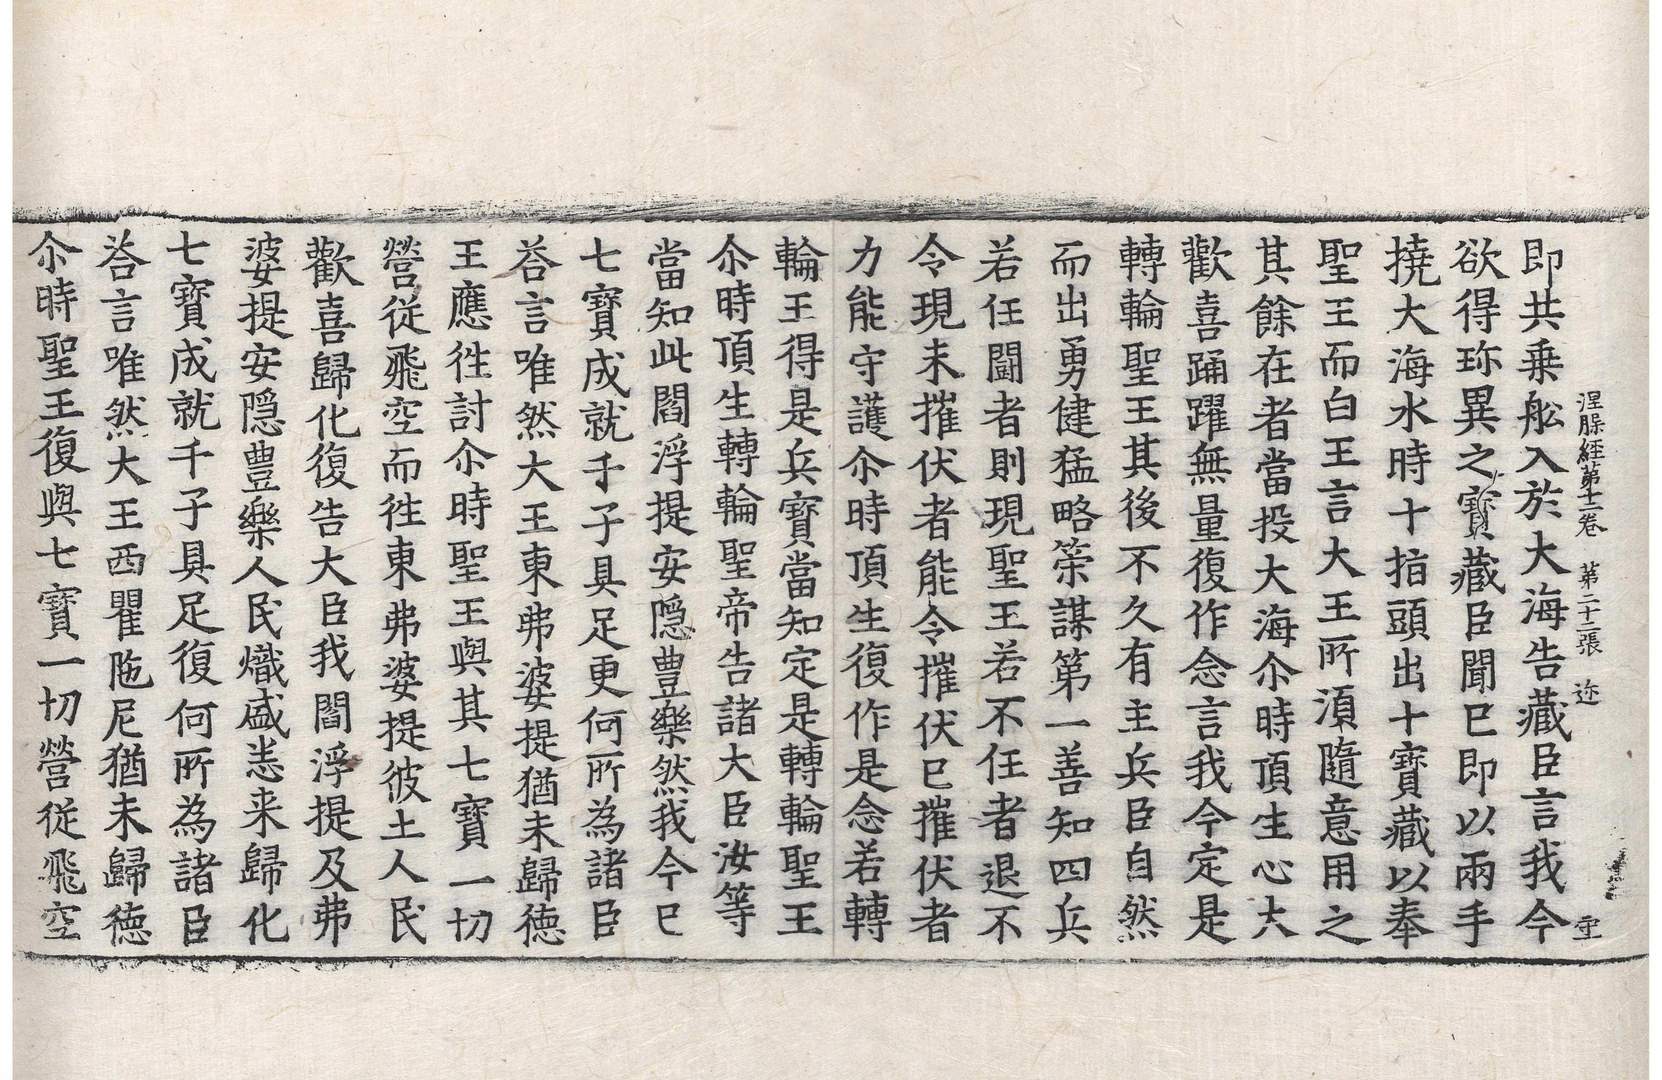 涅槃經第十二卷 第二十二張 迩 王
即共乗舩入於大海告藏臣言我今
欲得珎異之寶藏臣聞已即以兩手
撓大海水時十指頭出十寶藏以奉
聖王而白王言大王所湏隨意用之
其餘在者當投大海尒時頂生心大
歡喜踊躍無量復作念言我今定是
轉輪聖王其後不久有主兵臣自然
而出勇健猛略策謀第一善知四兵
若任闘者則現聖王若不任者退不
令現未摧伏者能令摧伏已摧伏者
力能守護尒時頂生復作是念若轉
輪王得是兵寶當知定是轉輪聖王
尒時頂生轉輪聖帝告諸大臣汝等
當知此閻浮提安隠豊樂然我今已
七寶成就千子具足更何所為諸臣
荅言唯然大王東弗婆提猶未歸徳
王應徃討尒時聖王與其七寶一切
營從飛空而徃東弗婆提彼土人民
歡喜歸化復告大臣我閻浮提及弗
婆提安隠豊樂人民熾盛悉来歸化
七寶成就千子具足復何所為諸臣
荅言唯然大王西瞿陁尼猶未歸徳
尒時聖王復與七寶一切營從飛空